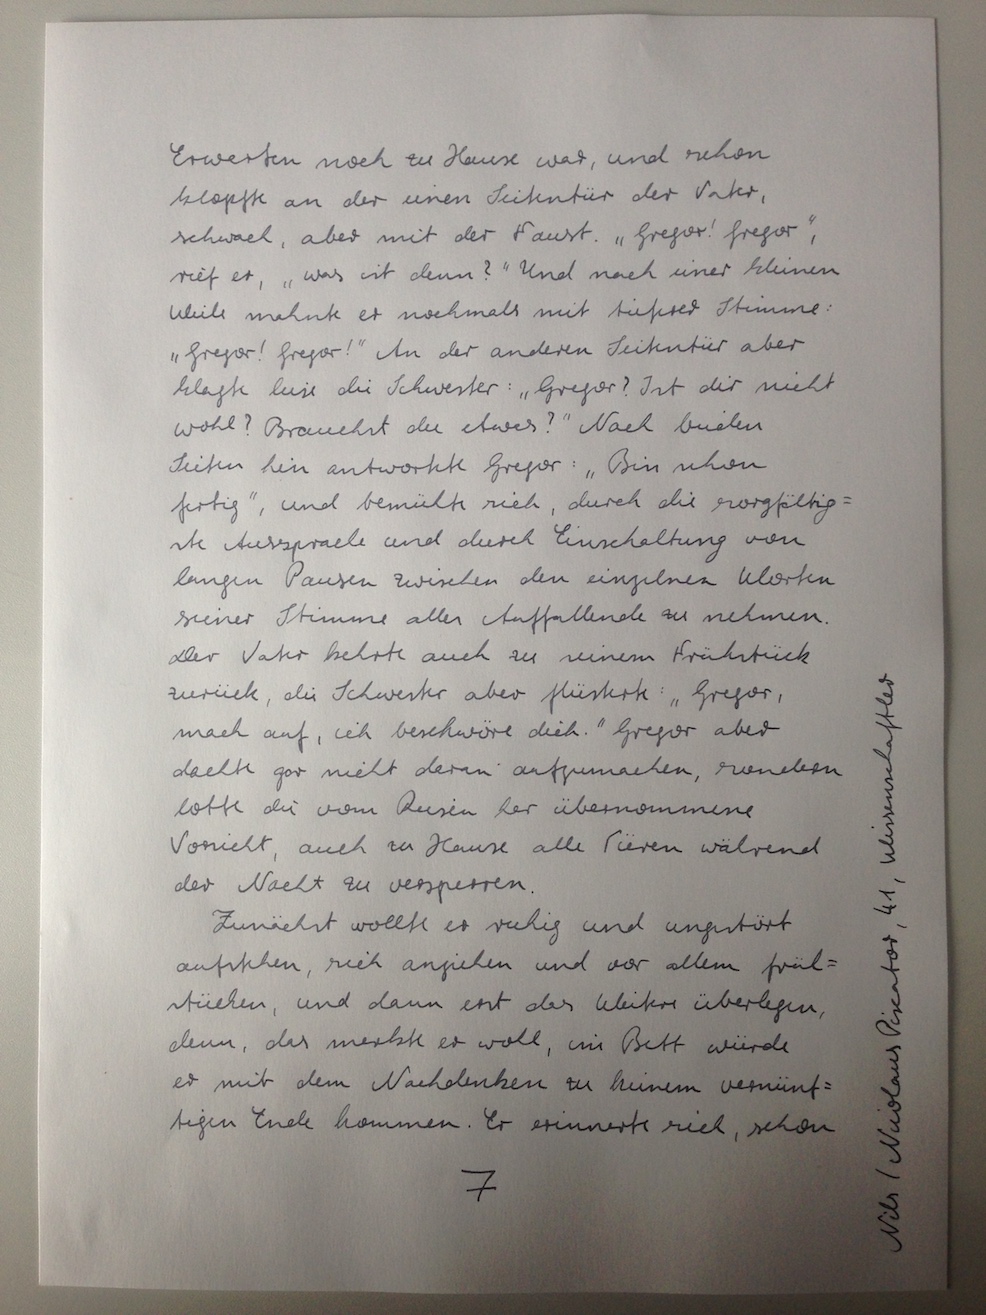 Erwarten noch zu Hause war, und schon
klopfte an der einen Seitentür der Vater,
schwach, aber mit der Faust. „Gregor! Gregor“,
rief er, „was ist denn?“ Und nach einer kleinen
Weile mahnte er nochmals mit tieferer Stimme:
„Gregor! Gregor!“ An der anderen Seitentür aber
klagte leise die Schwester: „Gregor? Ist dir nicht
wohl? Brauchst du etwas?“ Nach beiden
Seiten hin antwortete Gregor: „Bin schon
fertig“, und bemühte sich, durch die sorgfältig=
ste Aussprache und durch Einschaltung von
langen Pausen zwischen den einzelnen Worten
seiner Stimme alles Auffallende zu nehmen.
Der Vater kehrte auch zu seinem Frühstück
zurück, die Schwester aber flüsterte: „Gregor,
mach auf, ich beschwöre dich.“ Gregor aber
dachte gar nicht daran aufzumachen, sondern
lobte die vom Reisen her übernommene
Vorsicht, auch zu Hause alle Türen während
der Nacht zu versperren.
Zunächst wollte er ruhig und ungestört
aufstehen, sich anziehen und vor allem früh=
stücken, und dann erst das Weitere überlegen,
denn, das merkte er wohl, im Bett würde
er mit dem Nachdenken zu keinem vernünf=
tigen Ende kommen. Er erinnerte sich, schon
7
Nils / Nicolaus Piscator, 41, Wissenschaftler